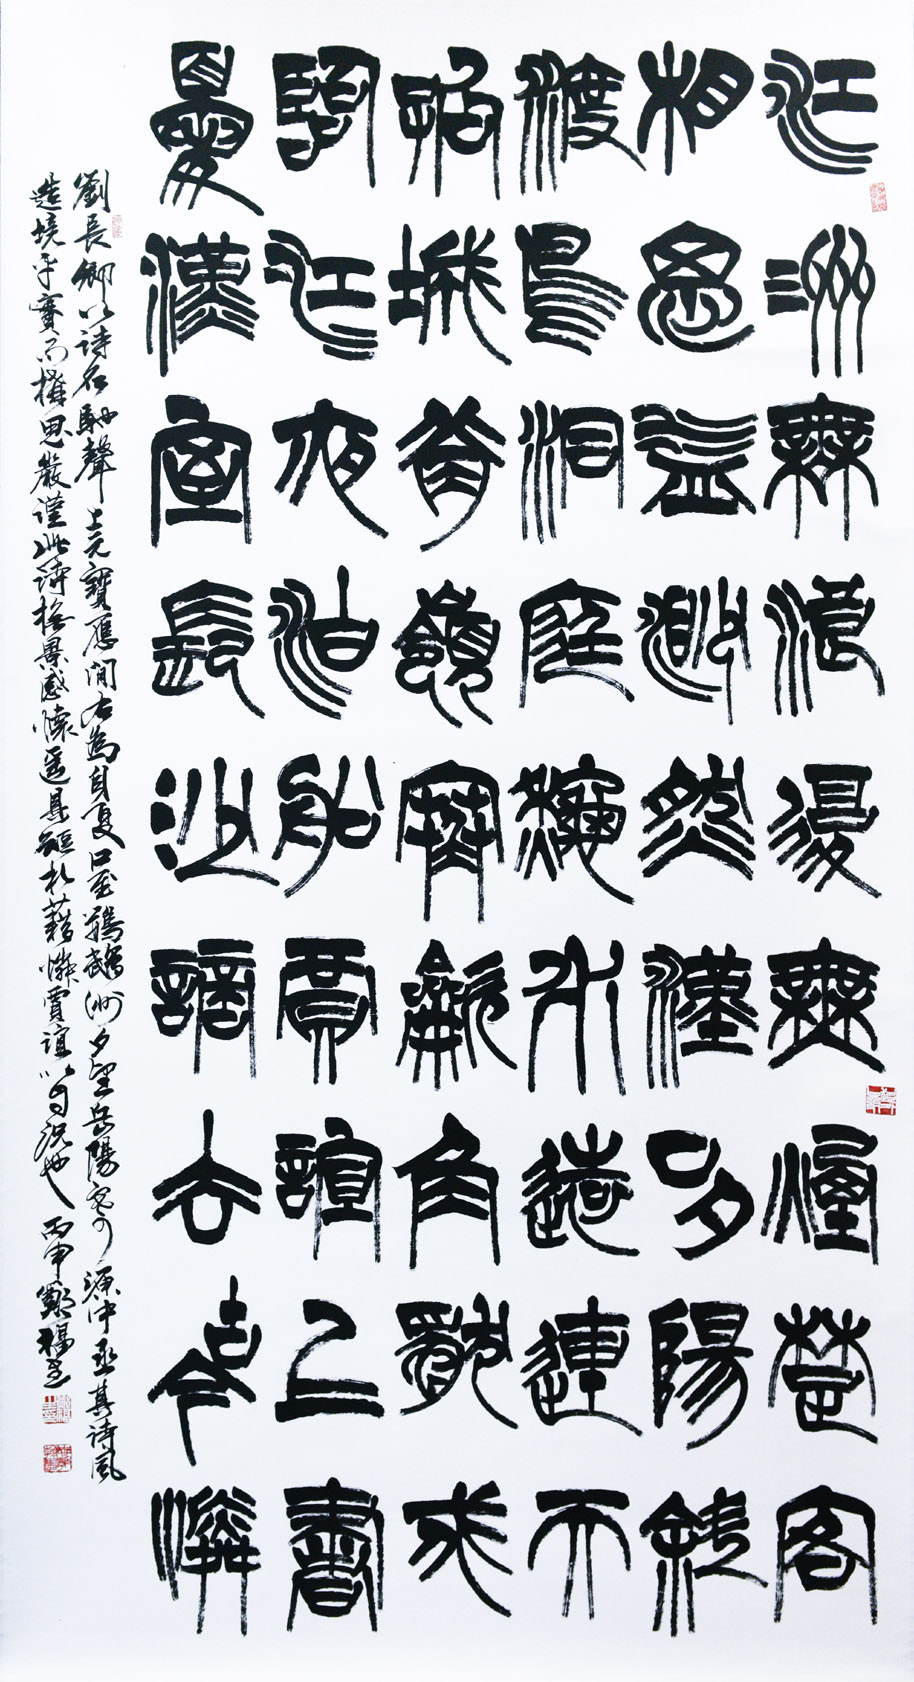 江洲無浪復無煙楚客
相思益渺然漢口夕陽斜
渡鳥洞庭秋水遠連天
孤城背嶺寒吹角獨戍
臨江夜泊船賈誼上書
憂漢室長沙謫去古今憐
劉長卿以詩名馳聲上元寶應間右為自夏口至鸚鵡洲夕望岳陽寄源中丞其詩風
造境平實而構思嚴謹此詩撫景感懷藉憐賈誼以自況也丙申鄭福